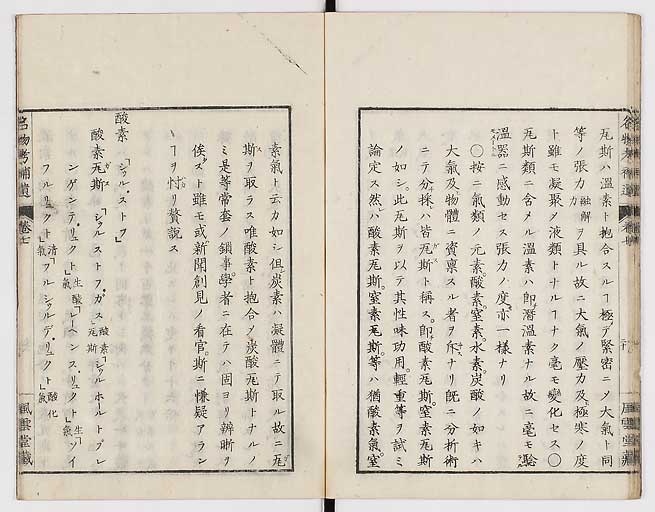 瓦斯ハ溫素ト抱合スルヿ極テ緊密ニノ大氣ト同
等ノ張力カ融解ヲ具ル故ニ大氣ノ壓力及極寒ノ度
ト雖モ凝聚メ液類トナルヿナク毫モ變化セス〇
瓦斯類ニ含メル溫素ハ即潛溫素ナル故ニ毫モ驗
溫器ニ感動セス張力ノ度亦一様ナリ
〇按ニ氣類ノ元素酸素窒素水素炭酸ノ如キハ
大氣及物體ニ資稟スル者ヲ斥ナリ既ニ分析術
ニテ分採ハ皆瓦斯ト稱ス即酸素瓦斯窒素瓦斯
ノ如シ此瓦斯ヲ以テ其性味功用輕重等ヲ試ミ
論定ス然ハ酸素瓦斯窒素瓦斯等ハ猶酸素氣窒
素氣ト云カ如シ但炭素ハ凝體ニテ取ル故ニ瓦
斯ヲ取ラス唯酸素ト抱合ノ炭酸瓦斯トナルノ
ミ是等常套ノ鎖事學者ニ在テハ固ヨリ辨晰ヲ
俟スト雖モ或新開創見ノ看官斯ニ慊疑アラン
ヿヲ忖リ贅說ス
酸素「シウル・ストフ」
酸素瓦斯「シウルストフ・ガス酸素瓦斯」シウルホールトブレ
ンゲンテリュクト生酸氣」レーヘンス・リュクト生氣」ソイ
フルリュクト淸氣」フルシウルデ・リュクト酸化氣」
名物考補遺
卷七
風雲堂藏
風雲堂藏